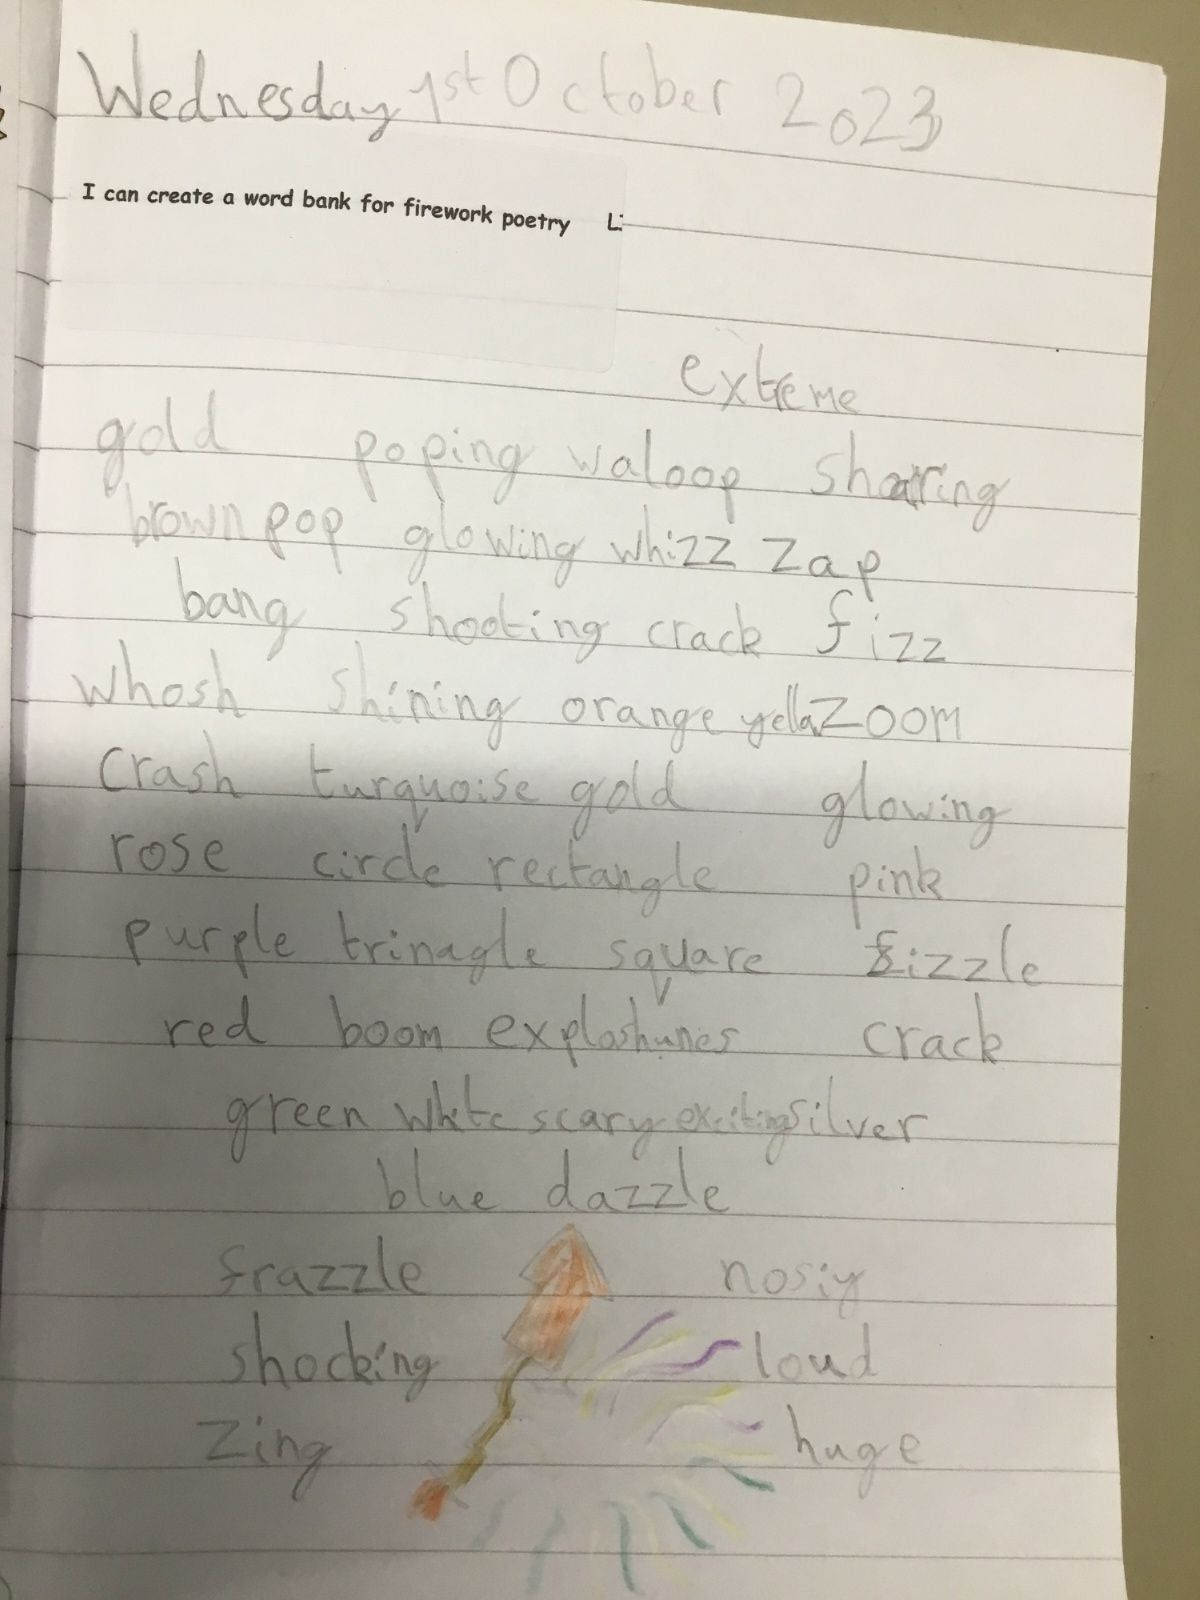 Wednesday 1st October 2023
I can create a word bank for firework poetry L:
extreme
gold poping waloop sharing
brown pop glowing whizz zap
bang shooting crack fizz
whosh shining orange yella zoom
crash turquoise gold glowing
rose circle rectangle pink
purple trinagle square fizzle
red boom exploshunes crack
green white scary exciting silver
blue dazzle
frazzle nosiy
shocking loud
zing huge